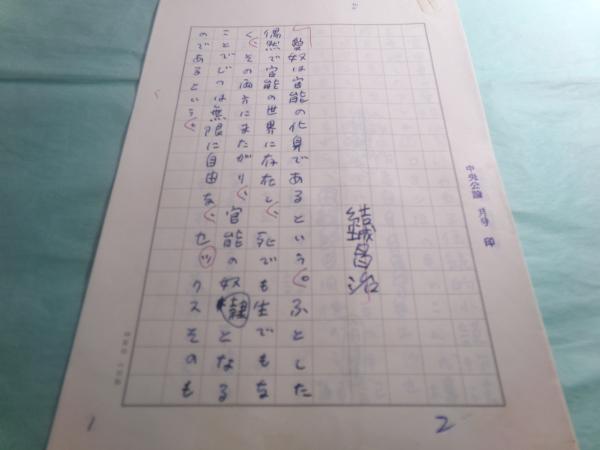 中央公論
印
結城昌治
愛奴は官能の化身であるという。ふとした
偶然で官能の世界に存在し、死でも生でもな
く、その両方にまたがり、官能の奴隷となる
ことでじつは無限に自由な、セックスそのも
のであるという。
2
1